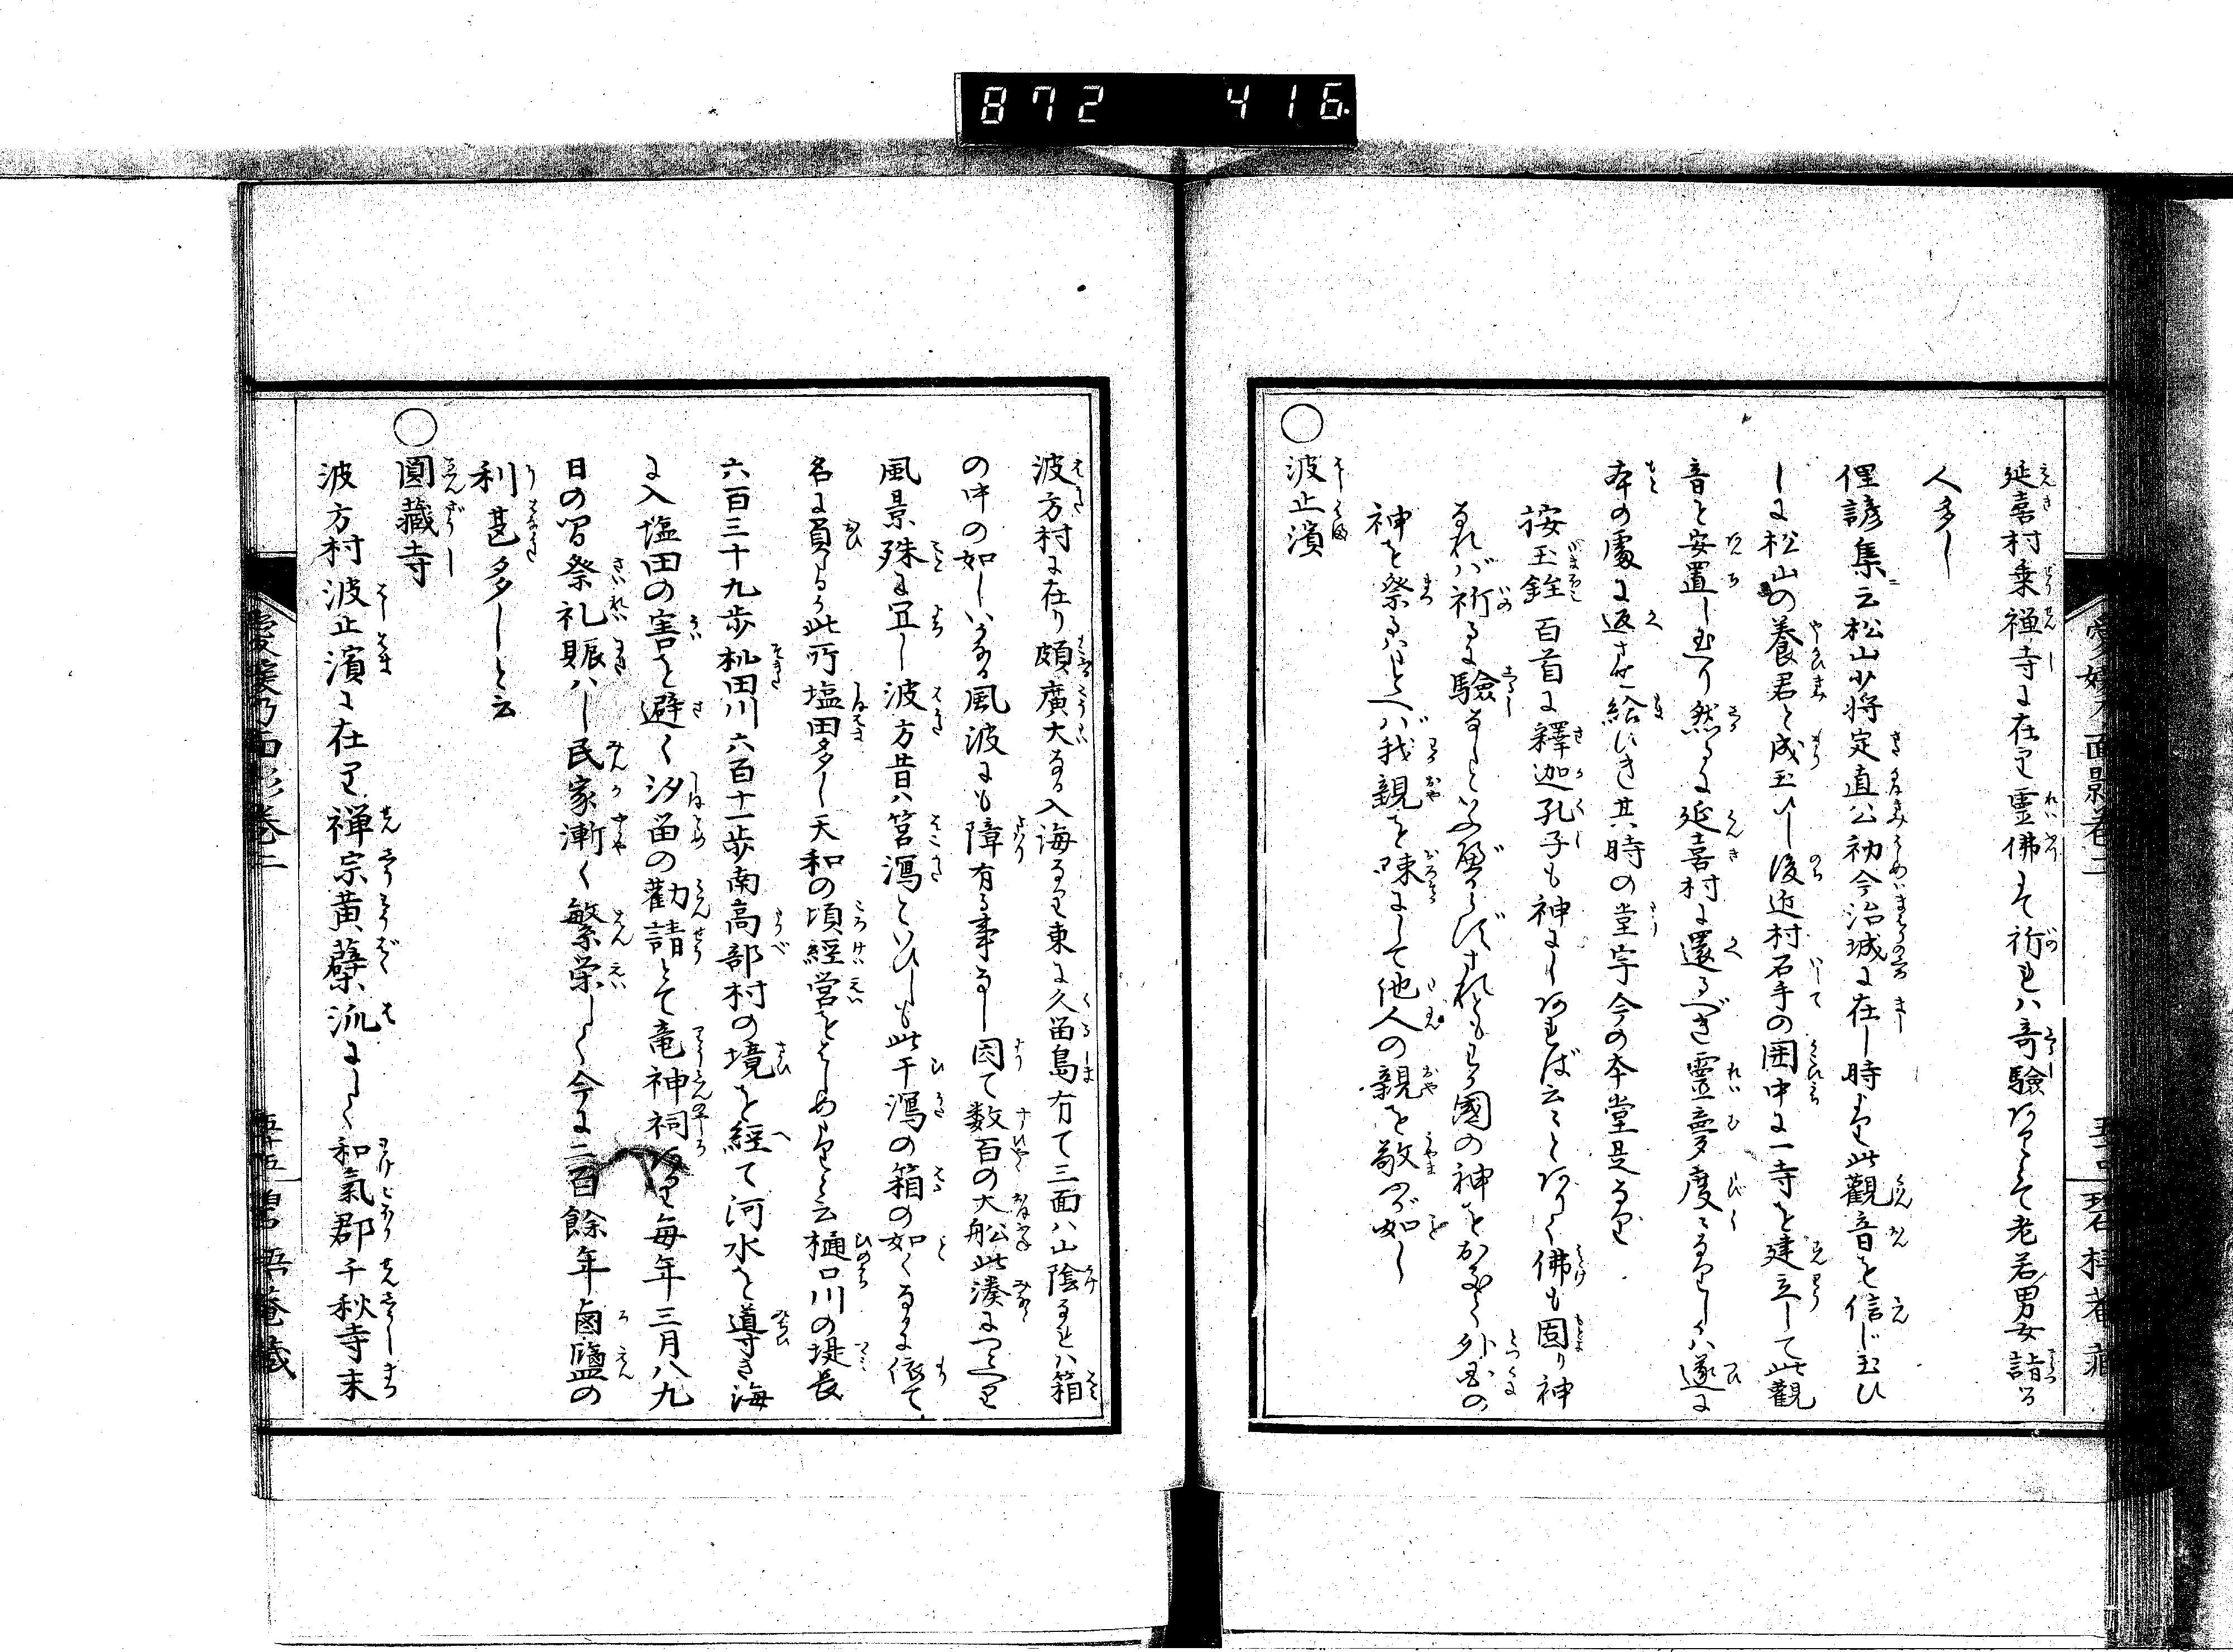 872 416
延喜村乗禅寺に在り霊佛にて祈れハ奇驗ありとて老若男女詣る
人多し
俚諺集ニ云松山少将定直公初今治城に在し時より此觀音を信じ玉ひ
しに松山の養君と成玉ひし後近村石手の囲中に一寺を建立して此觀
音を安置し玉へり然るに延喜村に還るべき霊夢度々なりしハ遂に
本の處に返させ給ひき其時の堂宇今の本堂是なり
按玉鉾百首に釋迦孔子も神にしあれば云々とありて佛も固り神
なれバ祈るに驗なしといふべからずされどもわが國の神をおきて外国の
神を祭るハたとへバ我親を疎にして他人の親を敬ふが如し
○波止濱
波方村に在り頗廣大なる入海なり東に久留島有て三面ハ山陰なれハ箱
の中の如しいかなる風波にも障有る事なし因て数百の大船此湊につどへり
風景殊に宜し波方昔ハ筥潟といひしも此干潟の箱の如くなるに依て
名に負るか此所塩田多し天和の頃經営をはしめたりと云樋口川の堤長
六百三十九歩杣田川六百十一歩南高部村の境を經て河水を導き海
に入塩田の害を避く汐留の勸請とて竜神祠あり毎年三月八九
日の間祭礼賑ハし民家漸く繁栄して今に二百餘年鹵鹽の
利甚多しと云
○圓藏寺
波方村波止濱に在り禅宗黄蘗流にして和氣郡千秋寺末
愛媛乃面影巻二